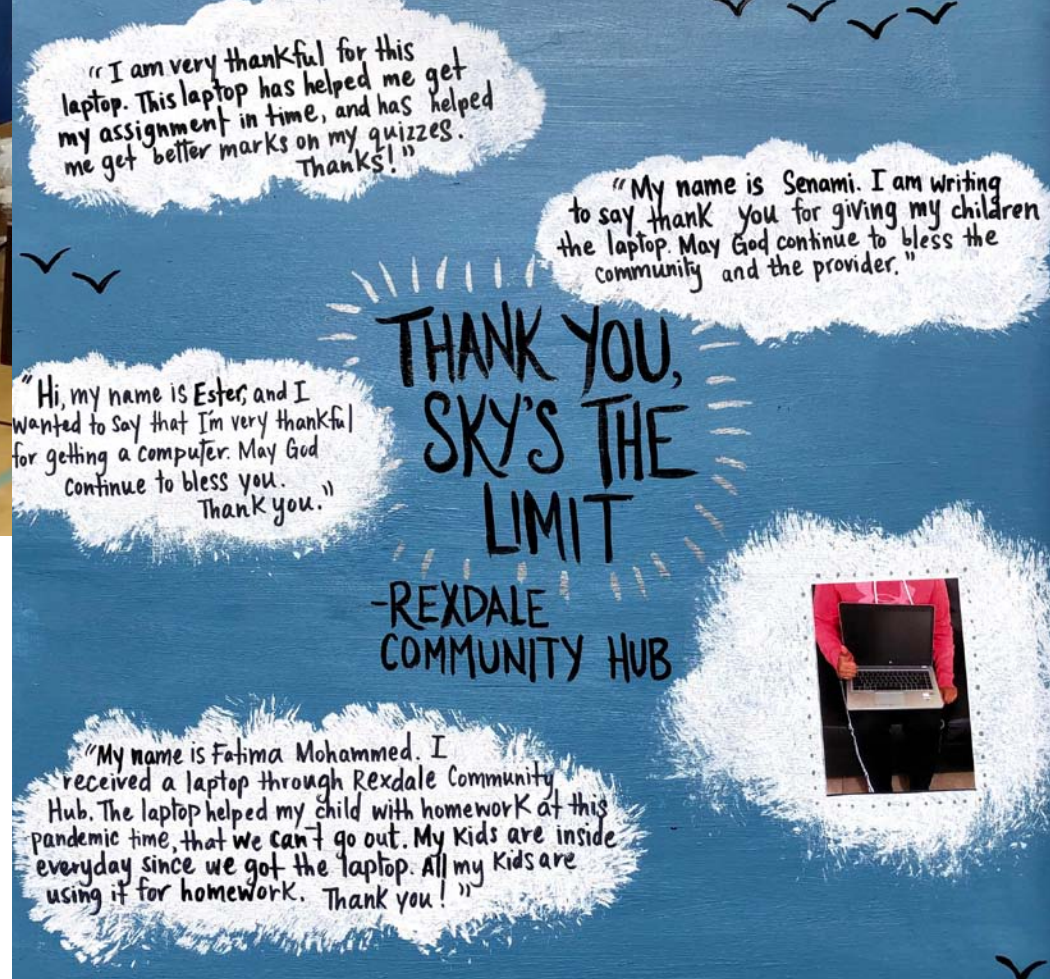 "I am very thankful for this
laptop. This laptop has helped me get
my assignment in time, and has helped
me get better marks on my quizzes.
Thanks!"
"My name is Senami. I am writing
to say thank you for giving my children
the laptop. May God continue to bless the
community and the provider."
THANK YOU,
SKY'S THE
LIMIT
-REXDALE
COMMUNITY HUB
"Hi, my name is Ester, and I
wanted to say that I'm very thankful
for getting a computer. May God
continue to bless you.
Thank you."
"My name is Fatima Mohammed. I
received a laptop through Rexdale Community
Hub. The laptop helped my child with homework at this
pandemic time, that we can't go out. My kids are inside
everyday since we got the laptop. All my kids are
using it for homework. Thank you!"